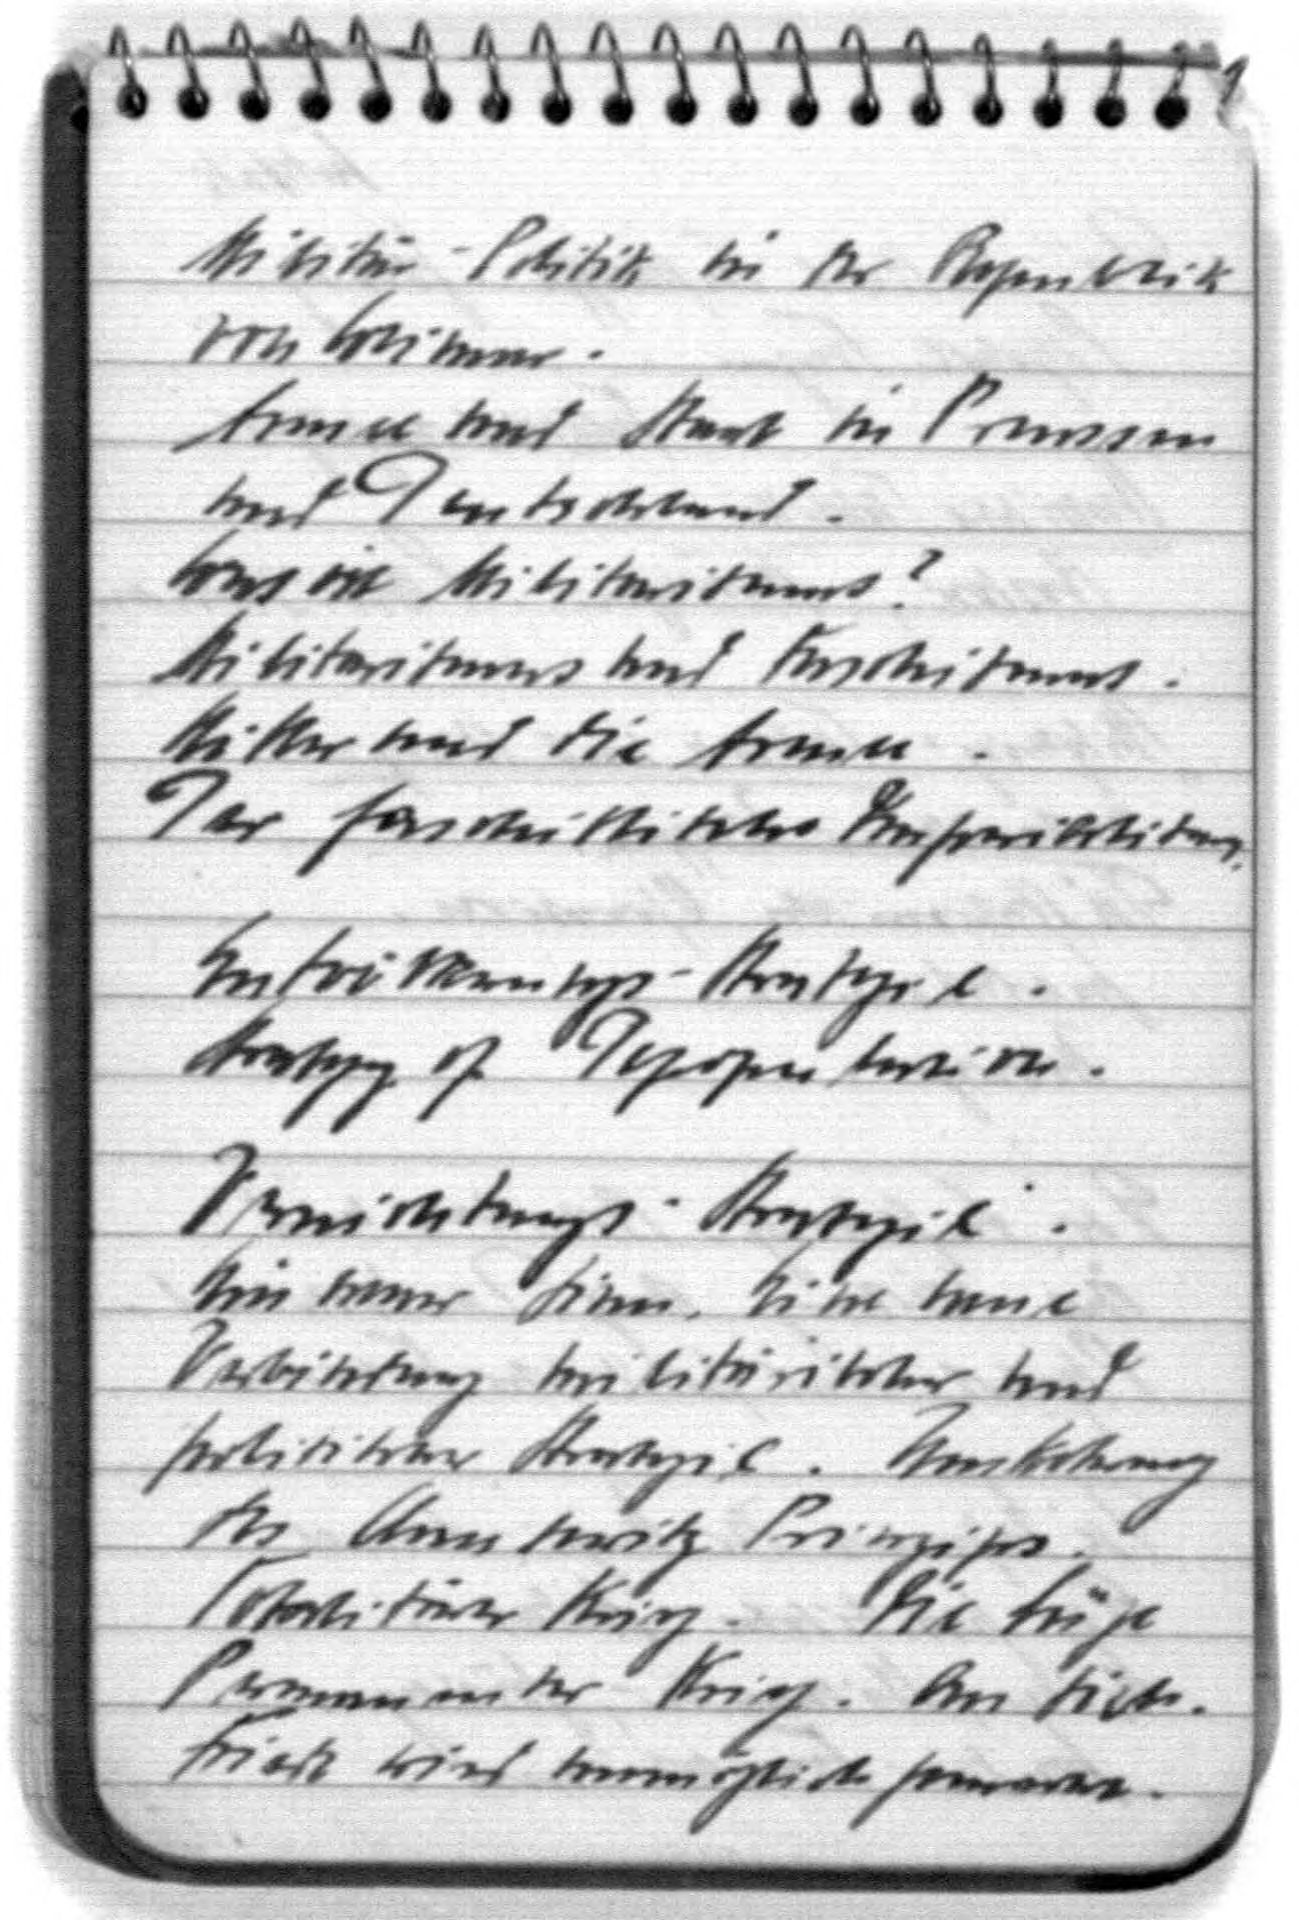 Militär-Politik in der Republik
von Weimar.
Armee und Staat in Preussen
und Deutschland.
Was ist Militarismus?
Militarismus und Faschismus.
Hitler und die Armee.
Der faschistische Imperialismus.
Entvölkerungs-Strategie.
Strategy of Depopulation.
Vernichtungs-Strategie.
Ein neuer Sinn. Eine neue
Verbindung militärischer und
politischer Strategie. Umkehrung
des Clausewitz Prinzips.
Totalitärer Krieg. Die
Permanenter Krieg.
Friede wird unmöglich gemacht.